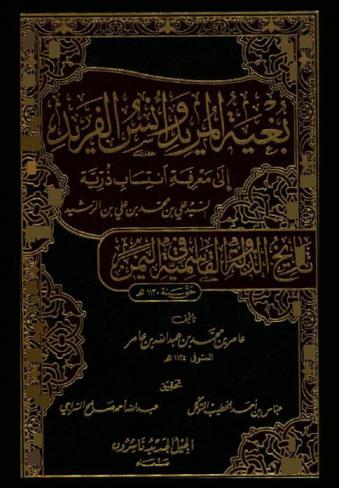 بغية المريد وأنس الفريد
إلى معرفة انتساب ذرية
السيد علي بن محمد بن علي بن الرشيد
تاريخ الدولة القاسمية في اليمن
حتى سنة ١١٣٠ هـ
تأليف
عامر بن محمد بن عبدالله بن عامر
المتوفى ١١٣٥ هـ
تحقيق
عباس بن أحمد الخطيب المتوكل
عبدالله أحمد صلح السراجي
الجيل الجديد ناشرون
صنعاء